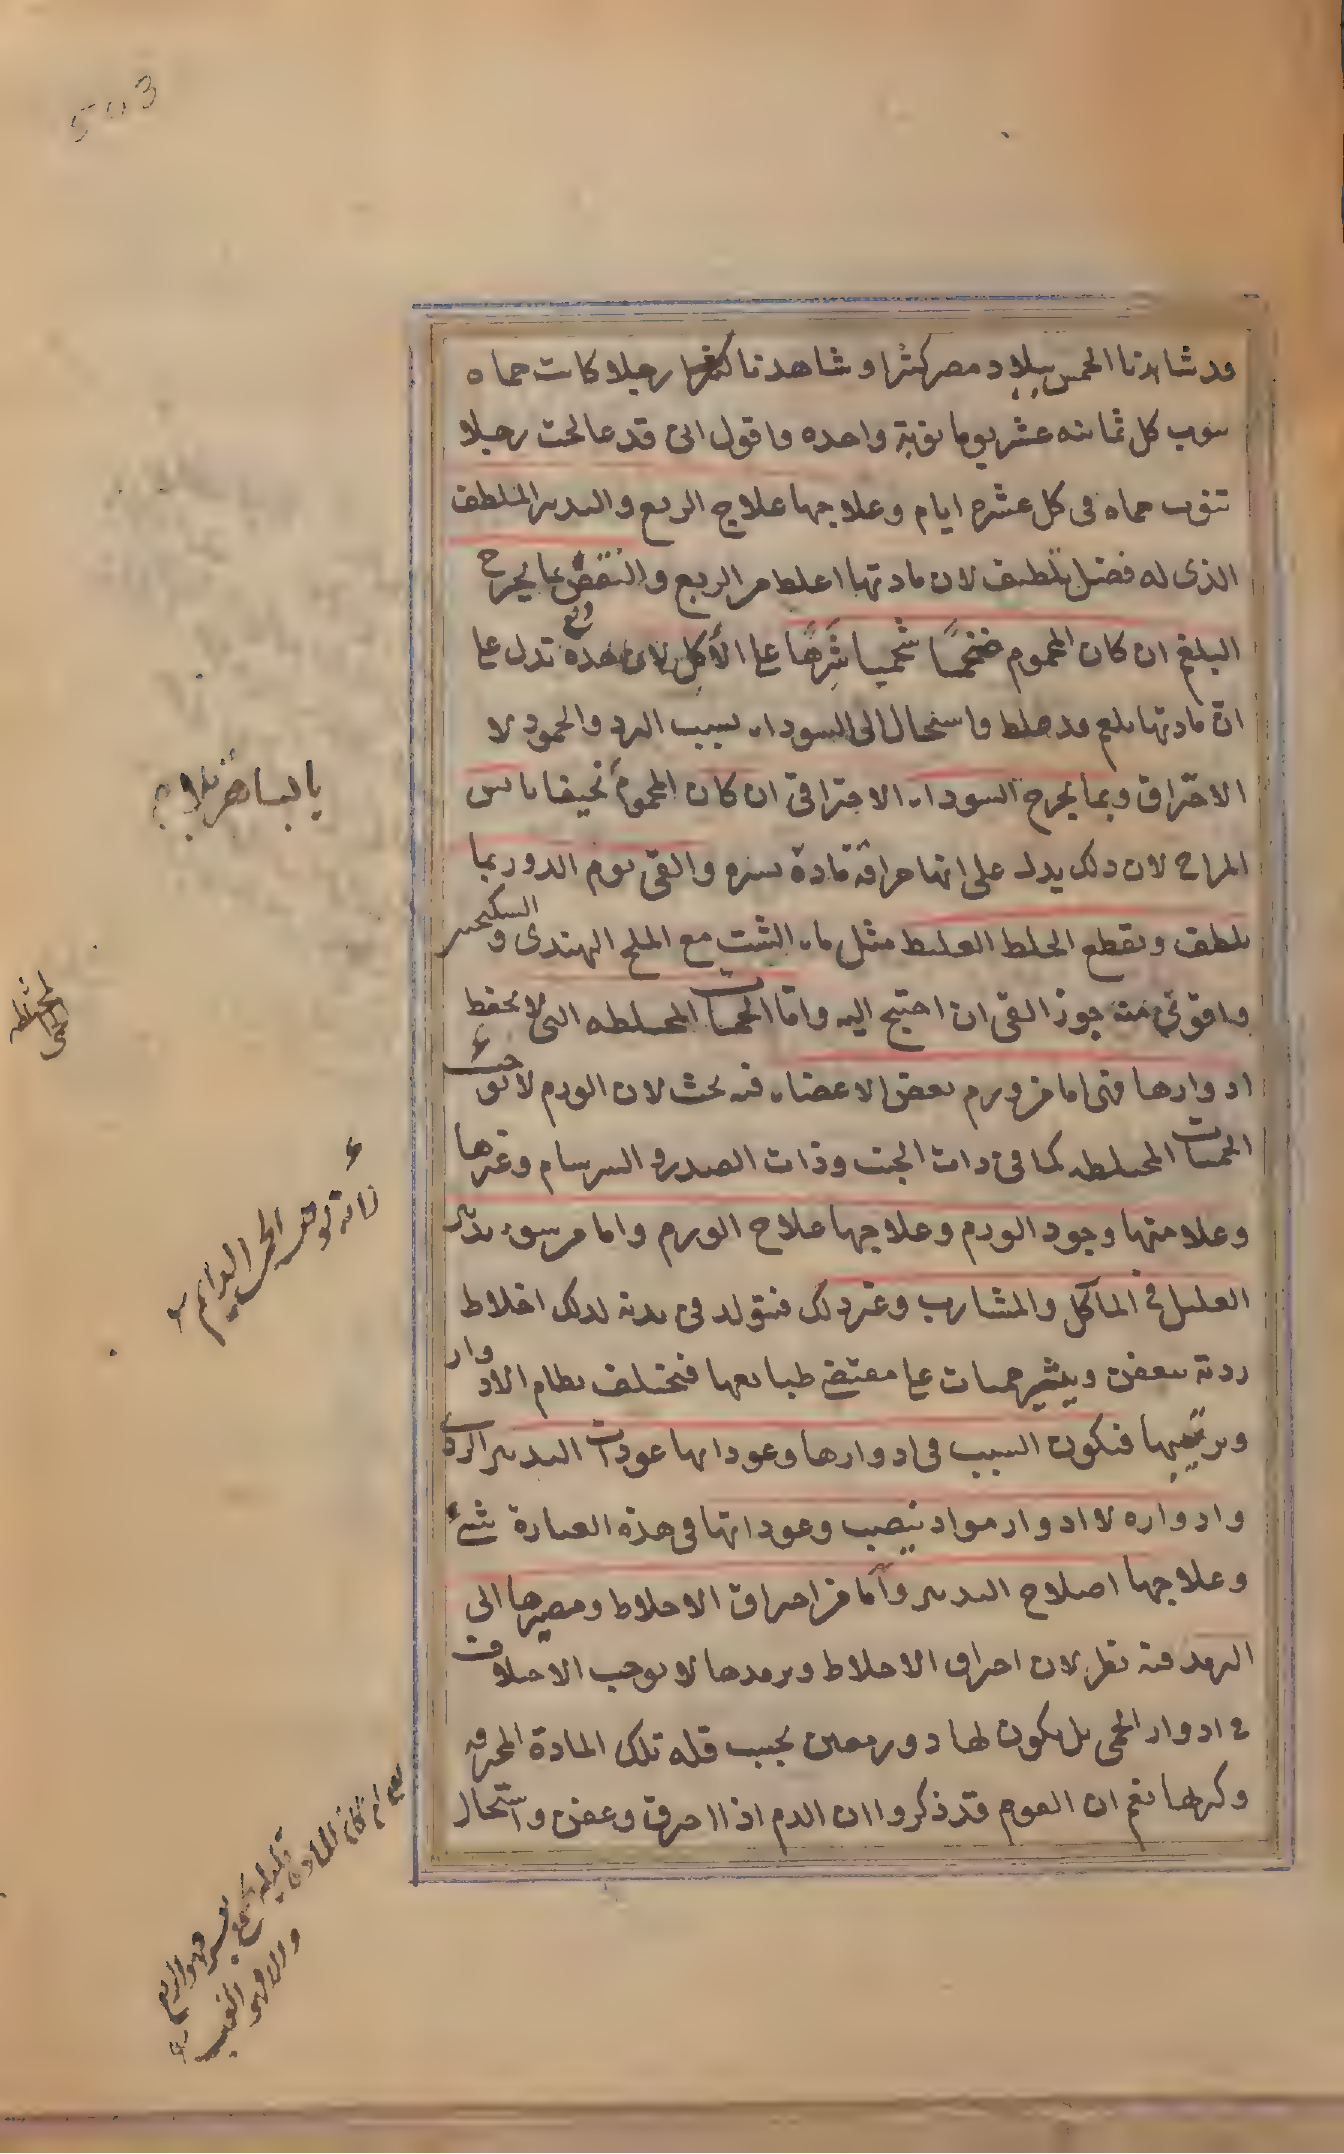 503
قد شاهدنا الخمس ببلاد مصر كثيرا وشاهدنا رجلا كانت حماه
تنوب كل ثمانية عشر يوما نوبة واحدة واقول انى قد عالجت رجلا
تنوب حماه فى كل عشرة ايام وعلاجها علاج الربع والتدبير الملطف
الذى له فضل تلطيف لان مادتها اغلظ من الربع والنقض بما يخرج
البلغم ان كان المحموم ضخمًا شحميا شَرِهًا على الأكل لان هذه تدل على
ان مادتها بلغم قد غلظ واستحال الى السوداء بسبب البرد والجمود لا
الاحتراق وبما يخرج السوداء الاحتراقى ان كان المحموم نحيفا يابس
المزاج لان ذلك يدل على انها حراقة مادة والقى يوم الدور بما
يلطف ويقطع الخلط الغليظ مثل ماء الشبت مع الملح الهندى والسكنجبين
واقوى منه جوز القى ان احتيج اليه واما الحميات المختلطة التى لا تحفظ
ادوارها فهى اما من ورم بعض الاعضاء فيه بحث لان الورم لا يوجب
الحميات المختلطة كما فى ذات الجنب وذات الصدر والسرسام وغيرها
وعلامتها وجود الورم وعلاجها علاج الورم واما من سوء تدبير
العليل فى المآكل والمشارب وغير ذلك فيتولد فى بدنه لذلك اخلاط
ردية تتعفن ويثير حميات على مقتضى طبايعها فتختلف نظام الادوار
وترتيبها فيكون السبب فى ادوارها وعوداتها عودات التدبير الردى
وادواره لا ادوار مواد تنصب وعوداتها فى هذه العبارة شىء
وعلاجها اصلاح التدبير واما من احتراق الاخلاط ومصيرها الى
الترمد فيه نظر لان احتراق الاخلاط وترمدها لا يوجب الاختلاف
فى ادوار الحمى بل يكون لها دور معين بحسب قلة تلك المادة المحترقة
وكثرتها نعم ان القوم قد ذكروا ان الدم اذا احترق وعفن واستحال
الحمى المختلطة
لانه توجب الحمى الدايم
والا فهو الغب